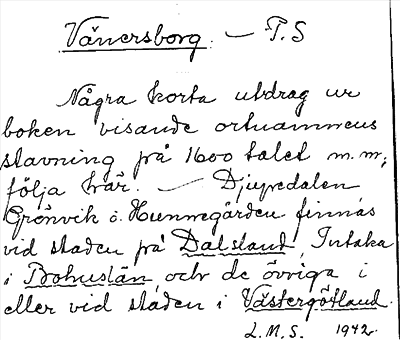 Vänersborg. — P.S
Några korta utdrag ur
boken visande ortnamnens
stavning på 1600 talet m.m;
följa här. — Djupedalen
Grönvik o. Hunnegården finnas
vid staden på Dalsland, Intaka
i Bohuslän, och de övriga i
eller vid staden i Västergötland.
L.M.S. 1942.